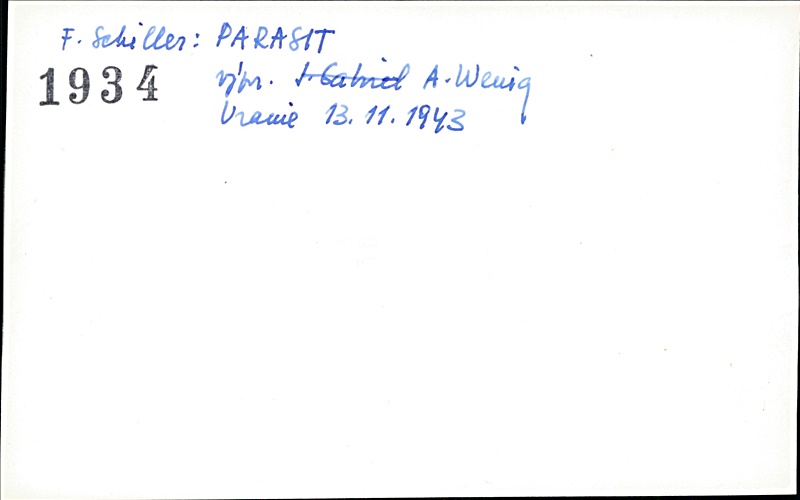 F. Schiller: PARASIT
1934 výpr. J. Gabriel A. Wenig
Uranie 13. 11. 1943